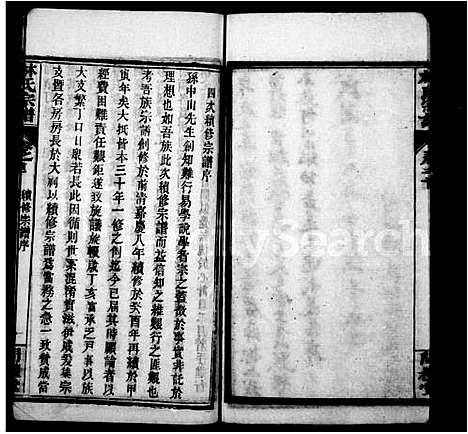 四次續修宗譜序
孫中山先生創知難行易學說學者宗之舊徵於事實非託於
理想也如吾族此次續修宗譜而益信知之維艱行之匪艱也
考吾族宗譜創修於南清嘉慶八年續修於癸酉年再續於甲
寅年矣大抵皆本三十年一修之例迄今已屆其時顧論者以
經費困難責任艱鉅遂致旋議旋輟歲丁亥
大支繁丁口日眾若長此因循則世系混淆
支暨各房房長於大祠以續修宗譜為當務之急一致贊成當
林氏宗譜
卷之首
續修宗譜序
MySearch